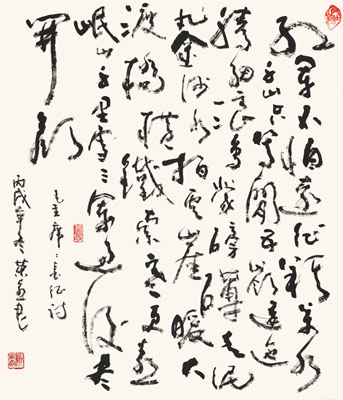 红軍不怕遠征難万水
千山只等閒五嶺逶迤
腾细浪烏蒙磅礴走泥
丸金沙水拍云崖暖大
渡橋横鐵索寒更喜
岷山千里雪三軍过后尽
開颜
毛主席长征诗
丙戌年冬